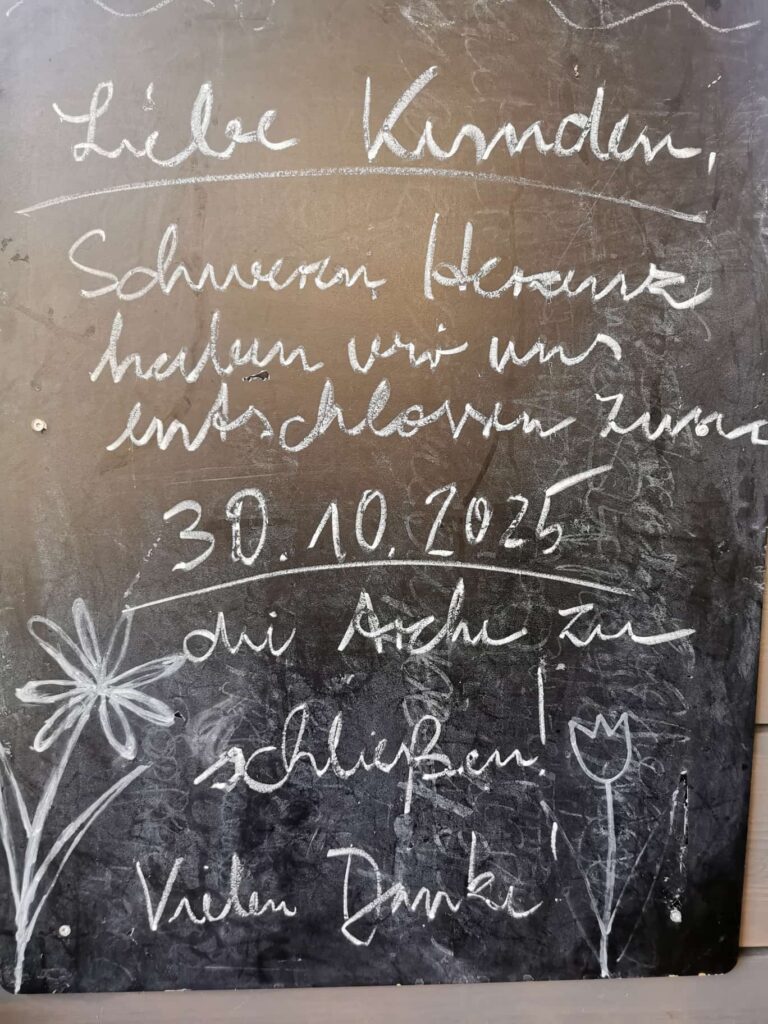 Liebe Kunden,
Schweren Herzens
haben wir uns
entschlossen zum
30.10.2025
die Arche zu
schließen!
Vielen Danke!